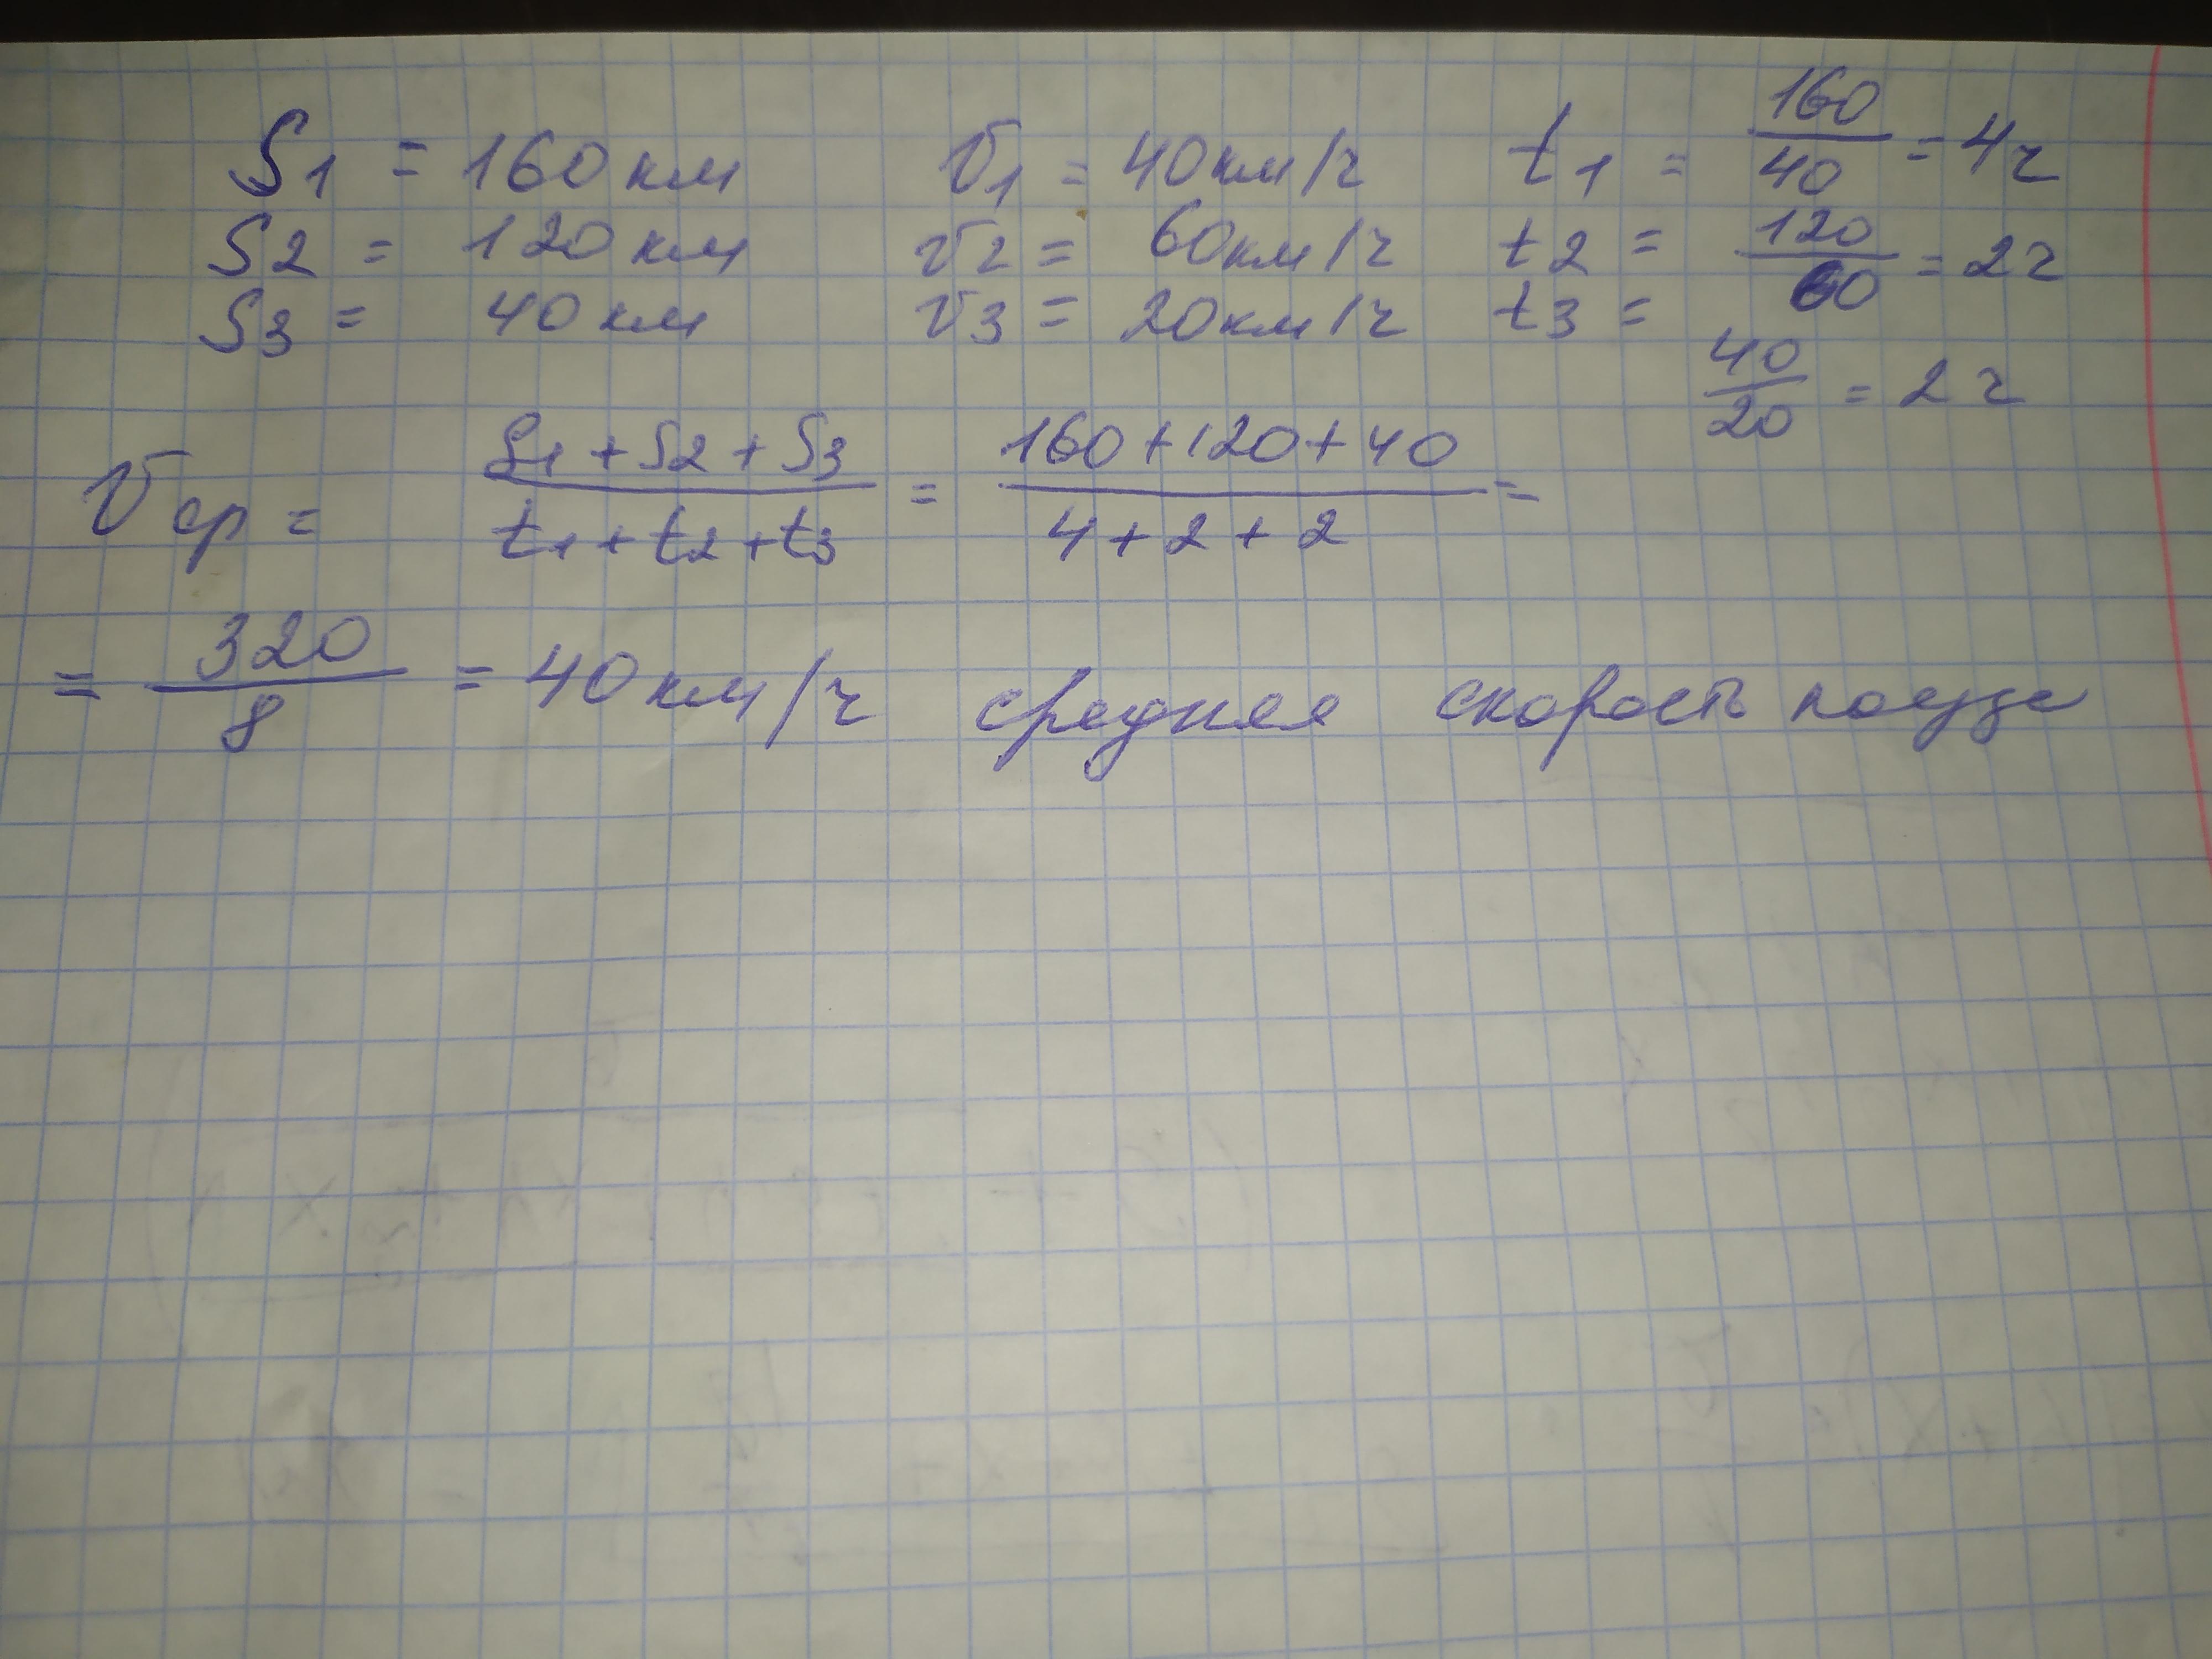 S1 = 160 км V1 = 40 км/ч t1 = 160/40 = 4ч
S2 = 120 км V2 = 60 км/ч t2 = 120/60 = 2ч
S3 = 40 км V3 = 20 км/ч t3 =
40/20 = 2 ч
Vср = S1 + S2 + S3 / t1 + t2 + t3 = 160 + 120 + 40 / 4 + 2 + 2 =
= 320/8 = 40 км/ч средняя скорость